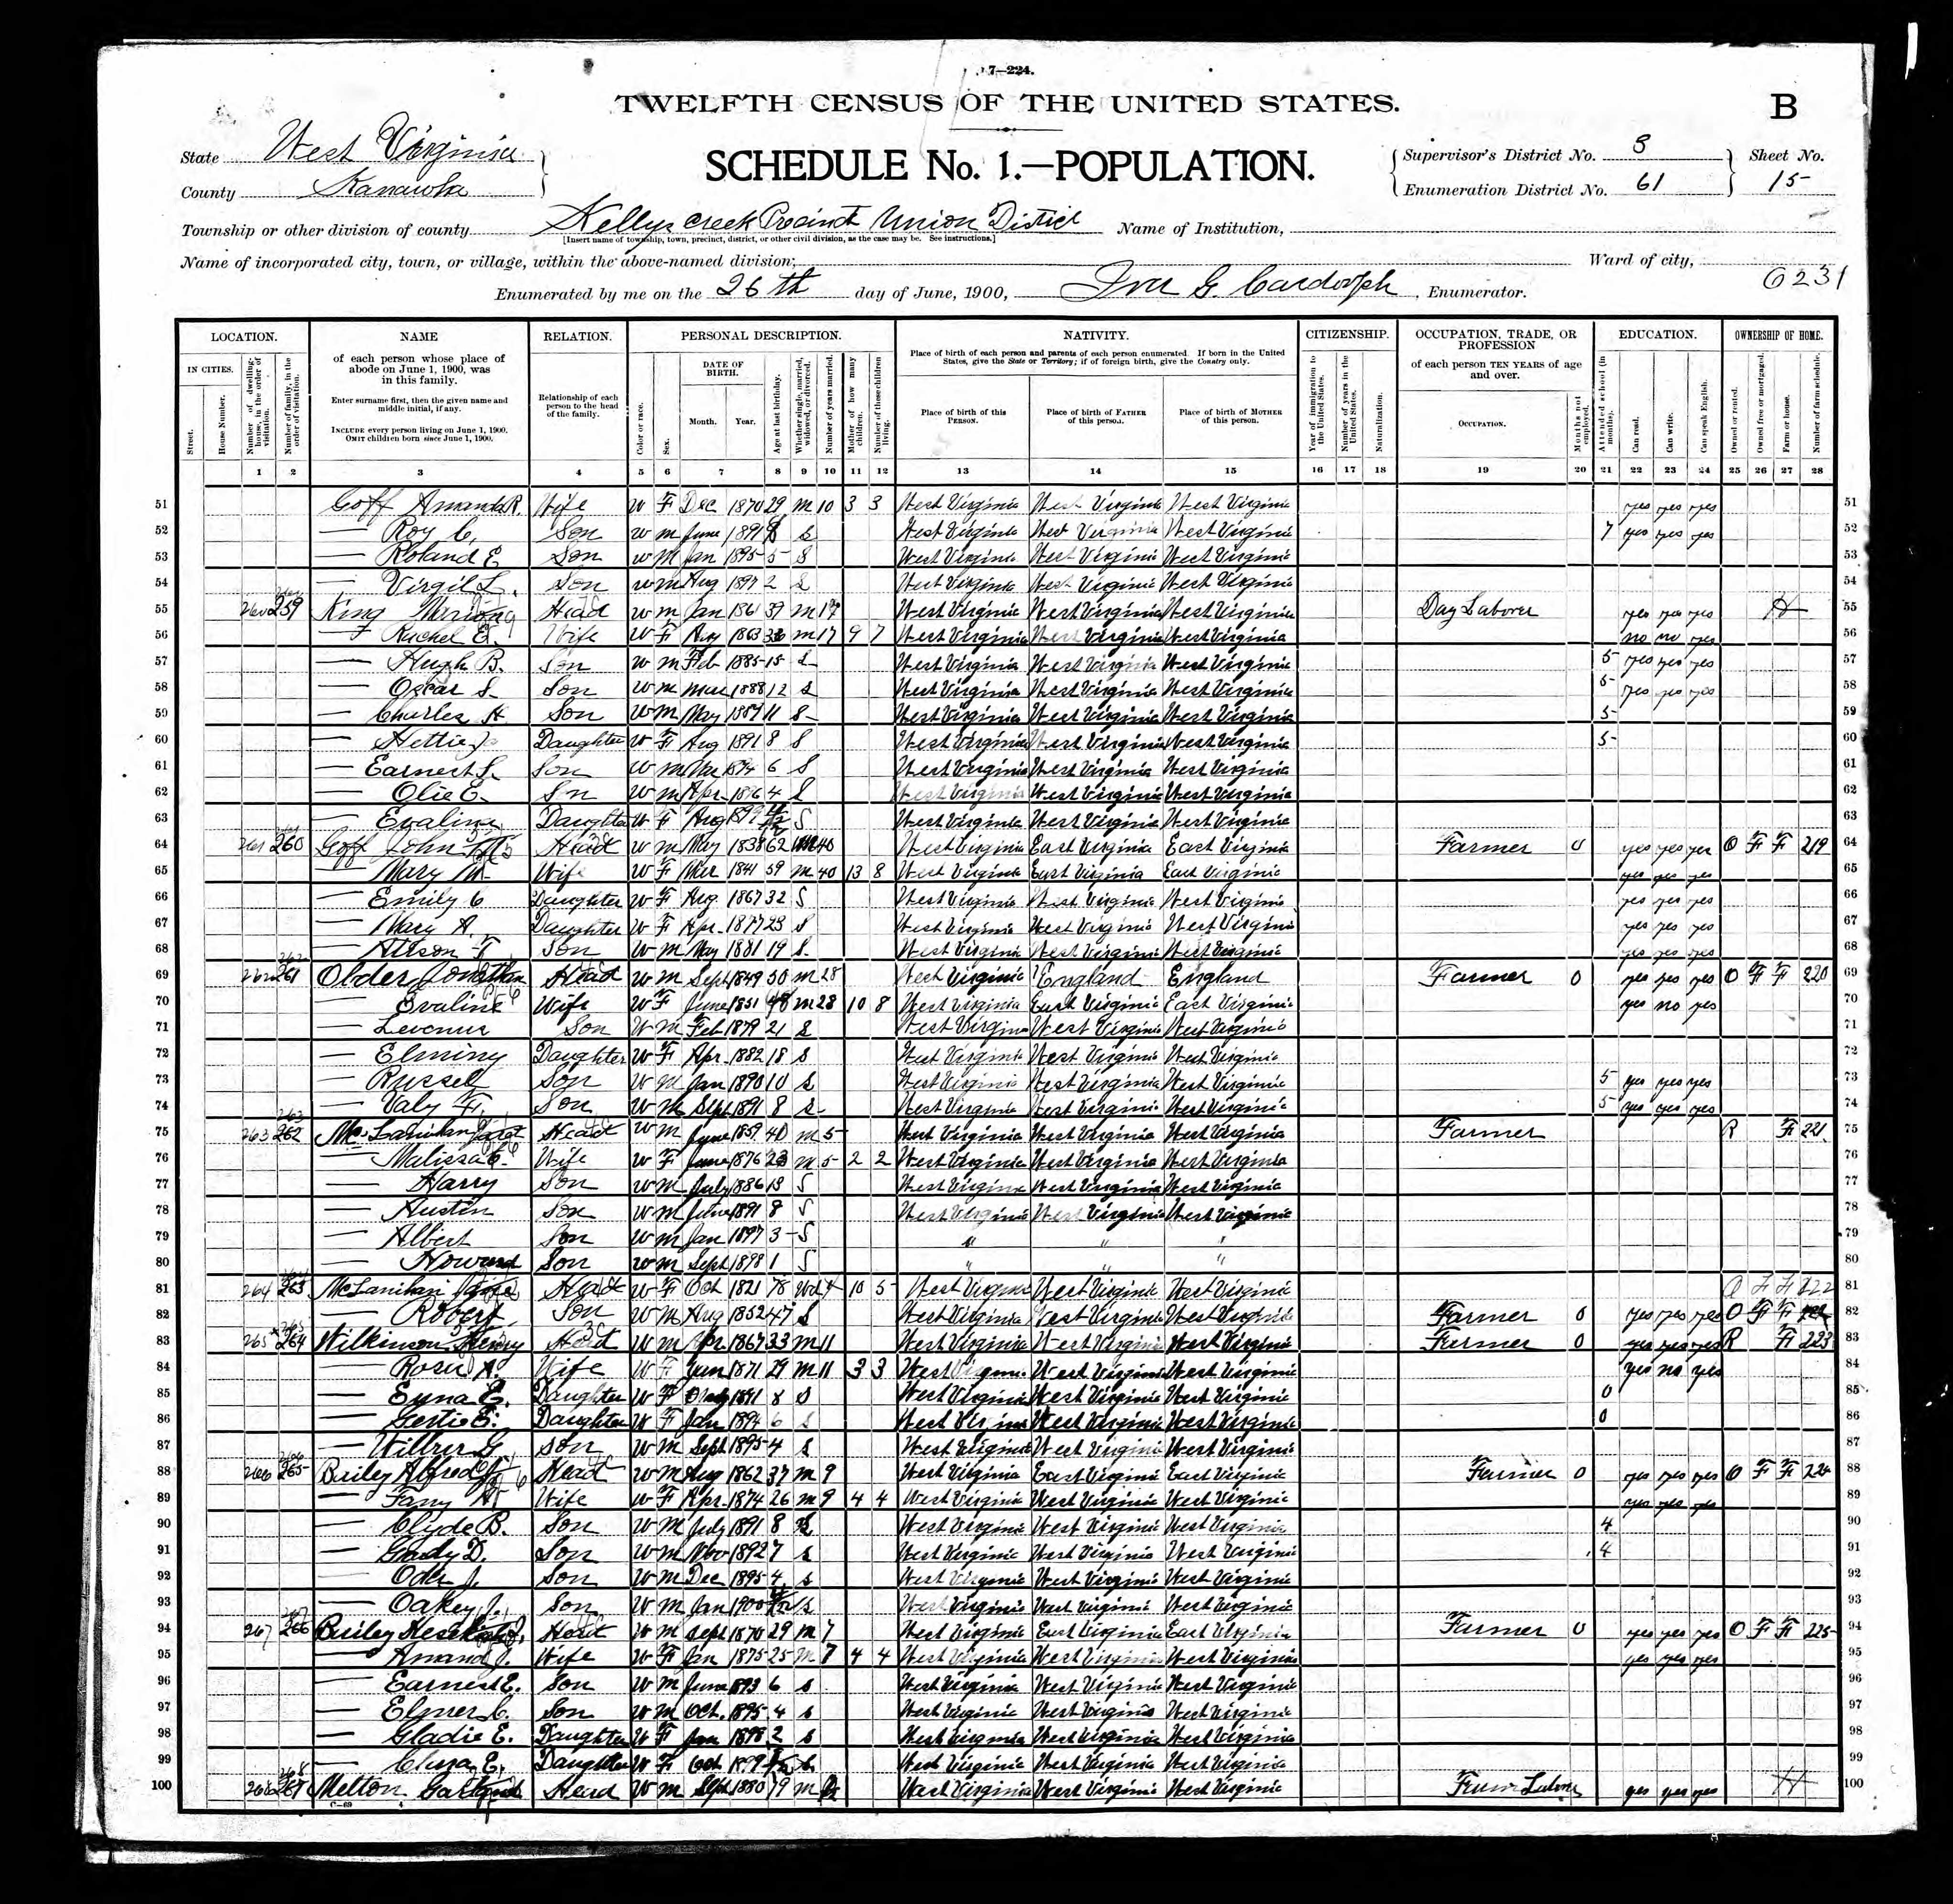 7—224.
TWELFTH CENSUS OF THE UNITED STATES.
B
State West Virginia
County Kanawha
SCHEDULE No. 1.—POPULATION.
Supervisor's District No. 3
Enumeration District No. 61
Sheet No.
15
Township or other division of county Kellys Creek Precinct Union District
[Insert name of township, town, precinct, district, or other civil division, as the case may be. See instructions.]
Name of Institution,
Name of incorporated city, town, or village, within the above-named division,
Ward of city,
6231
Enumerated by me on the 26th day of June, 1900, G. , Enumerator.
LOCATION. NAME RELATION. PERSONAL DESCRIPTION. NATIVITY. CITIZENSHIP. OCCUPATION, TRADE, OR PROFESSION EDUCATION. OWNERSHIP OF HOME.
IN CITIES.
Street.
House Number.
Number of dwelling-house, in the order of visitation.
Number of family, in the order of visitation.
of each person whose place of abode on June 1, 1900, was in this family.
Enter surname first, then the given name and middle initial, if any.
INCLUDE every person living on June 1, 1900.
OMIT children born since June 1, 1900.
Relationship of each person to the head of the family.
Color or race.
Sex.
DATE OF BIRTH.
Month. Year.
Age at last birthday.
Whether single, married, widowed, or divorced.
Number of years married.
Mother of how many children.
Number of these children living.
Place of birth of each person and parents of each person enumerated. If born in the United States, give the State or Territory; if of foreign birth, give the Country only.
Place of birth of this PERSON.
Place of birth of FATHER of this person.
Place of birth of MOTHER of this person.
Year of immigration to the United States.
Number of years in the United States.
Naturalization.
of each person TEN YEARS of age and over.
OCCUPATION.
Months not employed.
Attended school (in months).
Can read.
Can write.
Can speak English.
Owned or rented.
Owned free or mortgaged.
Farm or house.
Number of farm schedule.
1 2 3 4 5 6 7 8 9 10 11 12 13 14 15 16 17 18 19 20 21 22 23 24 25 26 27 28
51 Goff Amanda R. Wife W F Dec 1870 29 M 10 3 3 West Virginia West Virginia West Virginia yes yes yes 51
52 — Roy C. Son W M June 1891 8 S West Virginia West Virginia West Virginia 7 yes yes yes 52
53 — Roland E Son W M Jan 1895 5 S West Virginia West Virginia West Virginia 53
54 — Virgil L. Son W M Aug 1897 2 S West Virginia West Virginia West Virginia 54
55 259 King Head W M Jan 1861 39 M 17 West Virginia West Virginia West Virginia Day Laborer yes yes yes H 55
56 — Rachel E. Wife W F Aug 1863 M 17 9 7 West Virginia West Virginia West Virginia no no yes 56
57 — Hugh B. Son W M Feb 1885 15 S West Virginia West Virginia West Virginia 5 yes yes yes 57
58 — Oscar S. Son W M Mar 1888 12 S West Virginia West Virginia West Virginia 5 yes yes yes 58
59 — Charles H. Son W M May 1889 11 S West Virginia West Virginia West Virginia 5 59
60 — Hettie J. Daughter W F Aug 1891 8 S West Virginia West Virginia West Virginia 5 60
61 — Earnest S. Son W M Mar 1894 6 S West Virginia West Virginia West Virginia 61
62 — Olie E. Son W M Apr 1896 4 S West Virginia West Virginia West Virginia 62
63 — Evaline Daughter W F Aug 1899 S West Virginia West Virginia West Virginia 63
64 261 260 Goff John Head W M May 1838 62 M 40 West Virginia East Virginia East Virginia Farmer 0 yes yes yes O F F 219 64
65 — Mary M. Wife W F Mar 1841 59 M 40 13 8 West Virginia East Virginia East Virginia yes yes yes 65
66 — Emily C Daughter W F Aug 1867 32 S West Virginia West Virginia West Virginia yes yes yes 66
67 — Mary A. Daughter W F Apr 1877 23 S West Virginia West Virginia West Virginia yes yes yes 67
68 — Son W M May 1881 19 S West Virginia West Virginia West Virginia yes yes yes 68
69 262 261 Older Jonathan Head W M Sept 1849 50 M 28 West Virginia England England Farmer 0 yes yes yes O F F 220 69
70 — Evaline Wife W F June 1851 48 M 28 10 8 West Virginia East Virginia East Virginia yes no yes 70
71 — Son W M Feb 1879 21 S West Virginia West Virginia West Virginia 71
72 — Elminy Daughter W F Apr 1882 18 S West Virginia West Virginia West Virginia 72
73 — Russell Son W M Jan 1890 10 S West Virginia West Virginia West Virginia 5 yes yes yes 73
74 — Valy F. Son W M Sept 1891 8 S West Virginia West Virginia West Virginia 5 yes yes yes 74
75 263 262 McLanihan Head W M June 1859 40 M 5 West Virginia West Virginia West Virginia Farmer R F 221 75
76 — Malissa E. Wife W F June 1876 23 M 5 2 2 West Virginia West Virginia West Virginia 76
77 — Harry Son W M July 1886 13 S West Virginia West Virginia West Virginia 77
78 — Austin Son W M June 1891 8 S West Virginia West Virginia West Virginia 78
79 — Albert Son W M Jan 1897 3 S " " " 79
80 — Howard Son W M Sept 1898 1 S " " " 80
81 264 263 McLanihan Head W F Oct 1821 78 Wd 10 5 West Virginia West Virginia West Virginia O F F 222 81
82 — Robert Son W M Aug 1852 47 S West Virginia West Virginia West Virginia Farmer 0 yes yes yes O F F 82
83 265 264 Wilkinson Henry Head W M Apr 1867 33 M 11 West Virginia West Virginia West Virginia Farmer 0 yes yes yes R F 223 83
84 — Rosie A. Wife W F Jun 1871 29 M 11 3 3 West Virginia West Virginia West Virginia yes no yes 84
85 — E. Daughter W F 1891 8 S West Virginia West Virginia West Virginia 0 85
86 — Gertie E. Daughter W F Jan 1894 6 S West Virginia West Virginia West Virginia 0 86
87 — G. Son W M Sept 1895 4 S West Virginia West Virginia West Virginia 87
88 266 265 Briley Alfred Head W M Aug 1862 37 M 9 West Virginia East Virginia East Virginia Farmer 0 yes yes yes O F F 224 88
89 — Fany Wife W F Apr 1874 26 M 9 4 4 West Virginia West Virginia West Virginia yes yes yes 89
90 — Clyde B. Son W M July 1891 8 S West Virginia West Virginia West Virginia 4 90
91 — Grady D. Son W M Nov 1892 7 S West Virginia West Virginia West Virginia 4 91
92 — Oder J. Son W M Dec 1895 4 S West Virginia West Virginia West Virginia 92
93 — Oakey J. Son W M Jan 1900 S West Virginia West Virginia West Virginia 93
94 267 266 Briley Head W M Sept 1870 29 M 7 West Virginia East Virginia East Virginia Farmer 0 yes yes yes O F F 225 94
95 — Amand J. Wife W F Jan 1875 25 M 7 4 4 West Virginia West Virginia West Virginia yes yes yes 95
96 — Earnest E. Son W M June 1893 6 S West Virginia West Virginia West Virginia 96
97 — Elmer C. Son W M Oct. 1895 4 S West Virginia West Virginia West Virginia 97
98 — Gladie E. Daughter W F Jan 1898 2 S West Virginia West Virginia West Virginia 98
99 — E. Daughter W F Oct 1899 S West Virginia West Virginia West Virginia 99
100 268 Melton Head W M Sept 1880 19 M West Virginia West Virginia West Virginia Farm Labor yes yes yes H 100
C—69